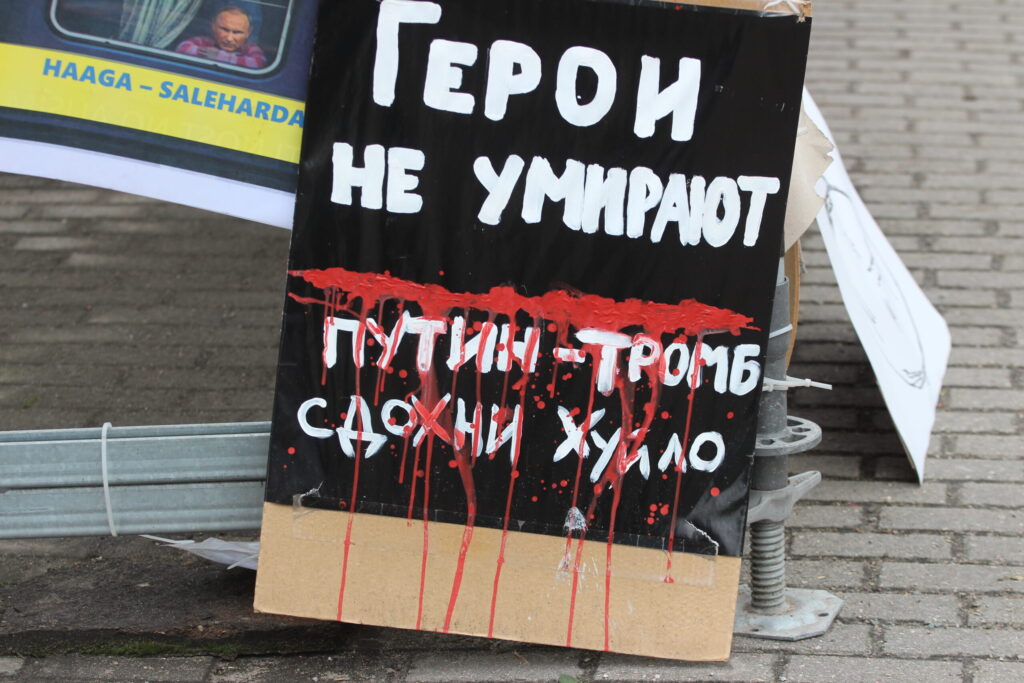 HAAGA – SALEHARDA
ГЕРОИ
НЕ УМИРАЮТ
ПУТИН – ТРОМБ
СДОХНИ ХУЙЛО